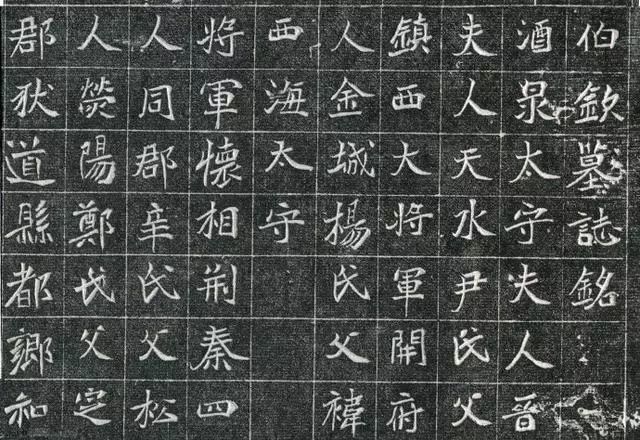 伯欽墓誌銘
酒泉太守夫人晉
夫人天水尹氏父
鎮西大將軍開府
人金城楊氏父褘
西海太守
將軍懷相荊秦四
人同郡辛氏父松
人熒陽鄭氏父定
郡狄道縣都鄉和